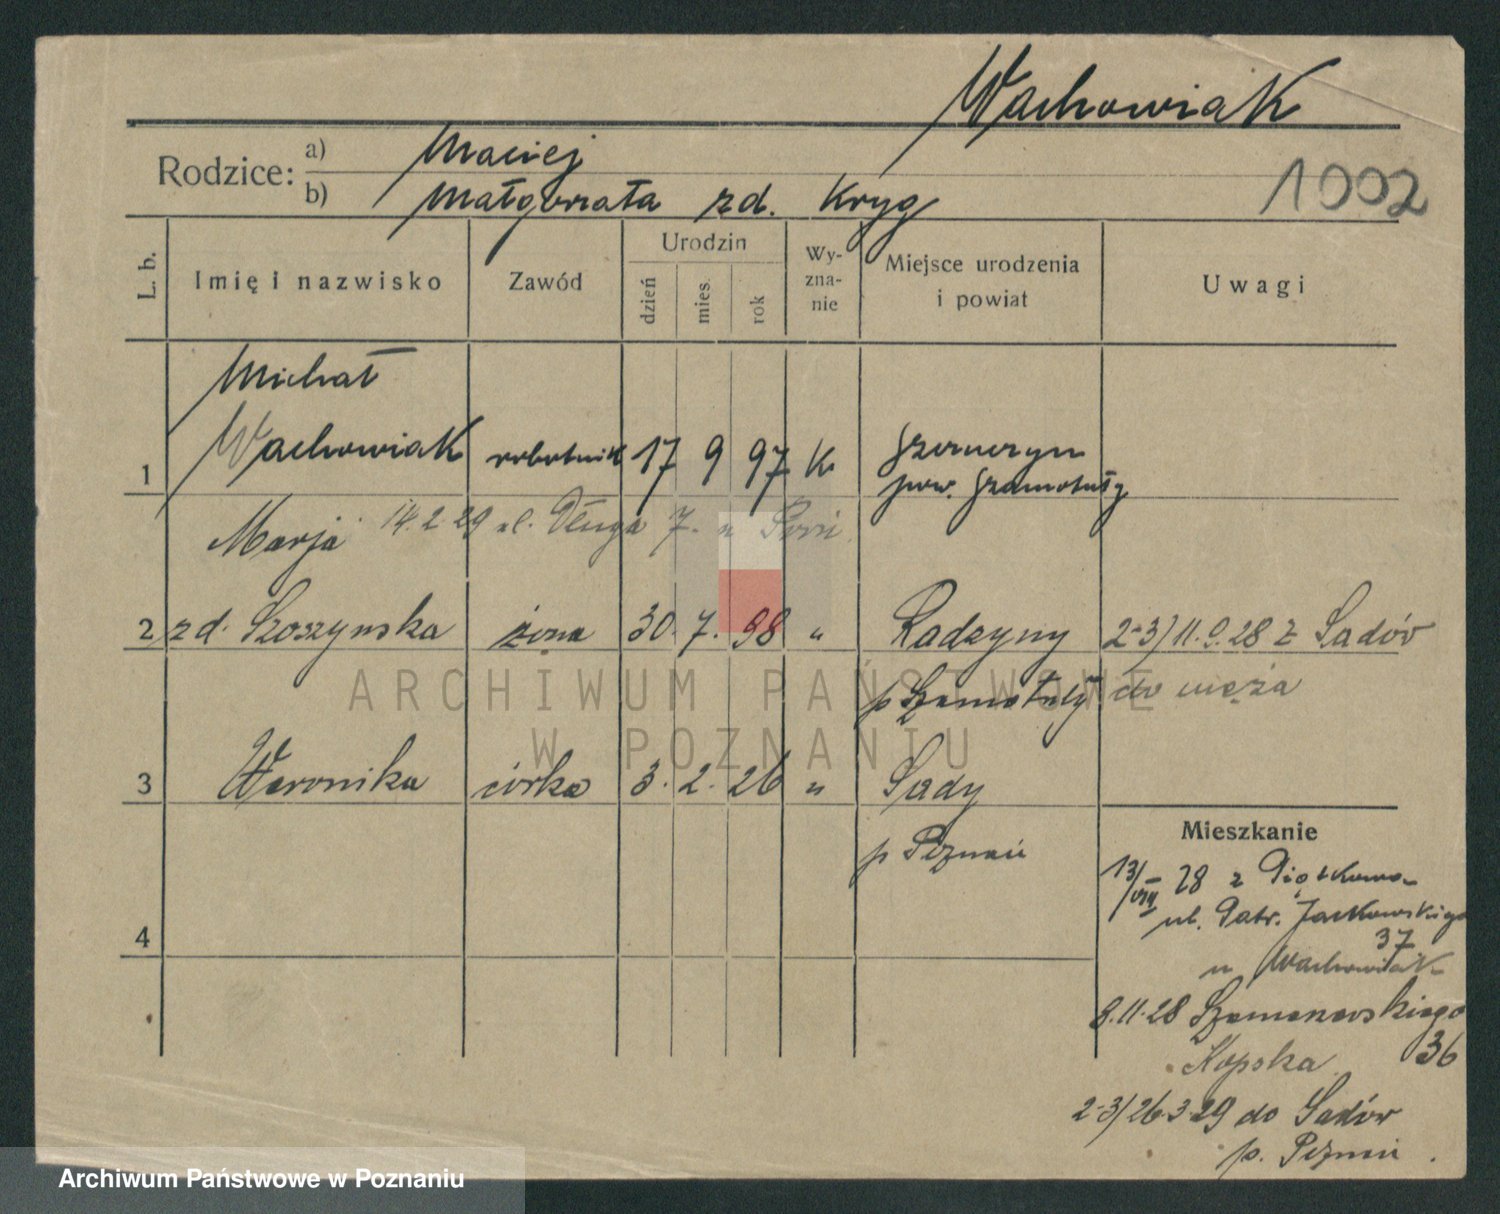 Wachowiak
Rodzice: a) Maciej
b) Małgorzata zd. Kryg
1002
L. b. Imię i nazwisko Zawód Urodzin dzień mies. rok Wyznanie Miejsce urodzenia i powiat Uwagi
Michał
1 Wachowiak robotnik 17 9 97 K
pow. Szamotuły
14.2.29 ul. Długa 7.
Marja
2 zd. Szoszynska żona 30. 7. 98 " Radzyny 2-3/11.9.28 z Sadów
p Szamotuły do męża
3 Weronika córka 3. 2. 26 " Sady
p Poznań
4
Mieszkanie
13/VIII 28 z Piątkowa
ul. Patr. Jackowskiego
37
u Wachowiak
8.11.28 Szamarzewskiego
36
Kopska
2-3/26.3.29 do Sadów
p. Poznań.
ARCHIWUM PAŃSTWOWE
W POZNANIU
Archiwum Państwowe w Poznaniu